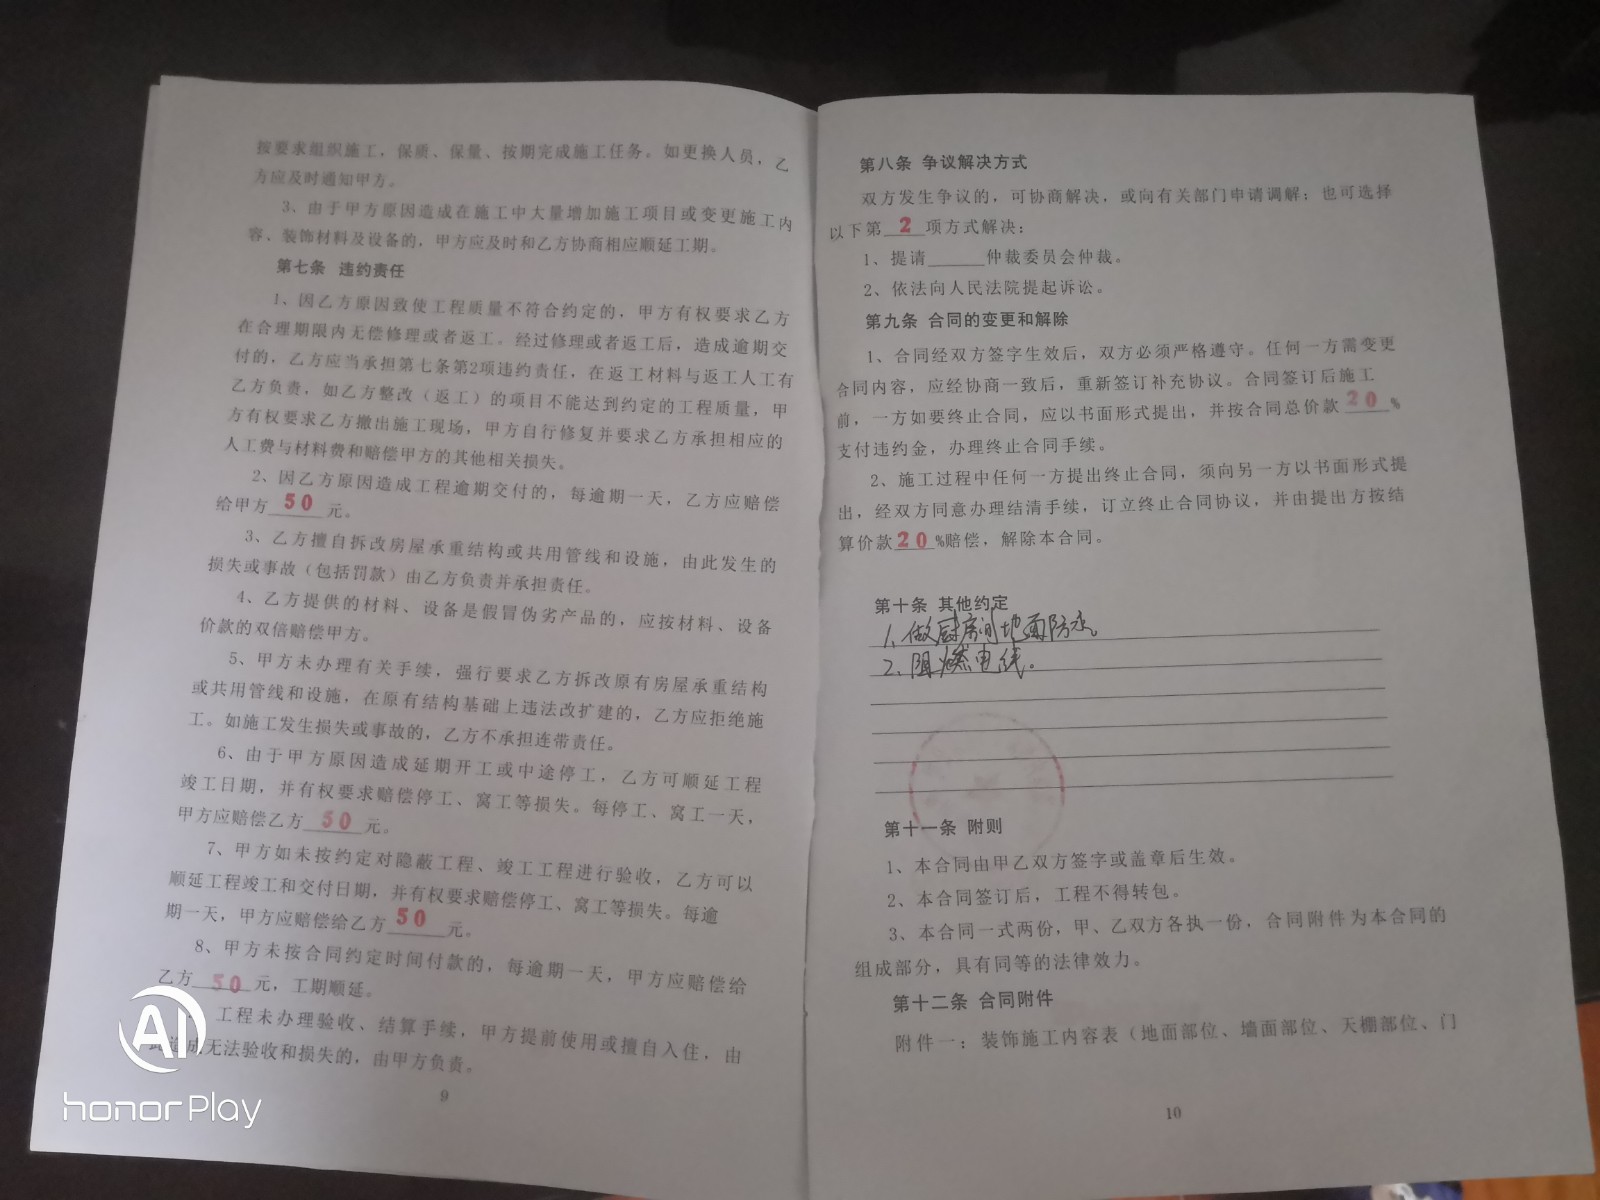 按要求组织施工，保质、保量、按期完成施工任务。如更换人员，乙
方应及时通知甲方。
3、由于甲方原因造成在施工中大量增加施工项目或变更施工内
容、装饰材料及设备的，甲方应及时和乙方协商相应顺延工期。
第七条 违约责任
1、因乙方原因致使工程质量不符合约定的，甲方有权要求乙方
在合理期限内无偿修理或者返工。经过修理或者返工后，造成逾期交
付的，乙方应当承担第七条第2项违约责任，在返工材料与返工人工有
乙方负责，如乙方整改（返工）的项目不能达到约定的工程质量，甲
方有权要求乙方撤出施工现场，甲方自行修复并要求乙方承担相应的
人工费与材料费和赔偿甲方的其他相关损失。
2、因乙方原因造成工程逾期交付的，每逾期一天，乙方应赔偿
给甲方 50 元。
3、乙方擅自拆改房屋承重结构或共用管线和设施，由此发生的
损失或事故（包括罚款）由乙方负责并承担责任。
4、乙方提供的材料、设备是假冒伪劣产品的，应按材料、设备
价款的双倍赔偿甲方。
5、甲方未办理有关手续，强行要求乙方拆改原有房屋承重结构
或共用管线和设施，在原有结构基础上违法改扩建的，乙方应拒绝施
工。如施工发生损失或事故的，乙方不承担连带责任。
6、由于甲方原因造成延期开工或中途停工，乙方可顺延工程
竣工日期，并有权要求赔偿停工、窝工等损失。每停工、窝工一天，
甲方应赔偿乙方 50 元。
7、甲方如未按约定对隐蔽工程、竣工工程进行验收，乙方可以
顺延工程竣工和交付日期，并有权要求赔偿停工、窝工等损失。每逾
期一天，甲方应赔偿给乙方 50 元。
8、甲方未按合同约定时间付款的，每逾期一天，甲方应赔偿给
乙方 50 元，工期顺延。
工程未办理验收、结算手续，甲方提前使用或擅自入住，由
造成无法验收和损失的，由甲方负责。
9
AI
honor Play
第八条 争议解决方式
双方发生争议的，可协商解决，或向有关部门申请调解；也可选择
以下第 2 项方式解决：
1、提请______仲裁委员会仲裁。
2、依法向人民法院提起诉讼。
第九条 合同的变更和解除
1、合同经双方签字生效后，双方必须严格遵守。任何一方需变更
合同内容，应经协商一致后，重新签订补充协议。合同签订后施工
前，一方如要终止合同，应以书面形式提出，并按合同总价款 20 %
支付违约金，办理终止合同手续。
2、施工过程中任何一方提出终止合同，须向另一方以书面形式提
出，经双方同意办理结清手续，订立终止合同协议，并由提出方按结
算价款 20 %赔偿，解除本合同。
第十条 其他约定
1、做厨房间地面防水。
2、阻燃电线。
第十一条 附则
1、本合同由甲乙双方签字或盖章后生效。
2、本合同签订后，工程不得转包。
3、本合同一式两份，甲、乙双方各执一份，合同附件为本合同的
组成部分，具有同等的法律效力。
第十二条 合同附件
附件一：装饰施工内容表（地面部位、墙面部位、天棚部位、门
10